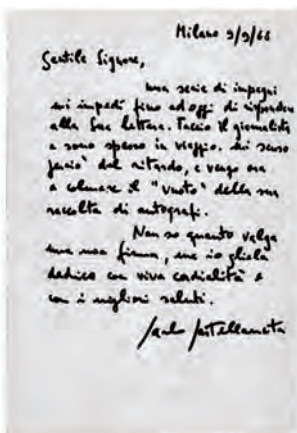 Milano 9/9/66
Gentile Signore,
una serie di impegni
mi impedì fino ad oggi di rispondere
alla Sua lettera. Faccio il giornalista
e sono spesso in viaggio. Mi scuso
perciò del ritardo, e vengo ora
a colmare il "vuoto" della sua
raccolta di autografi.
Non so quanto valga
una mia firma, ma io gliela
dedico con viva cordialità e
con i migliori saluti.
Carlo Castellaneta